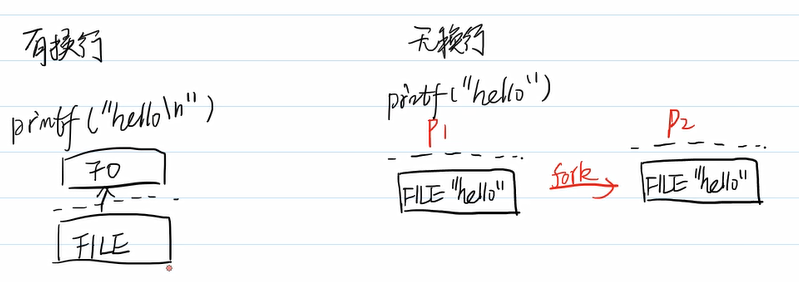 有换行
printf("hello\n")
FO
FILE
无换行
printf("hello")
P1
FILE "hello"
fork
P2
FILE "hello"